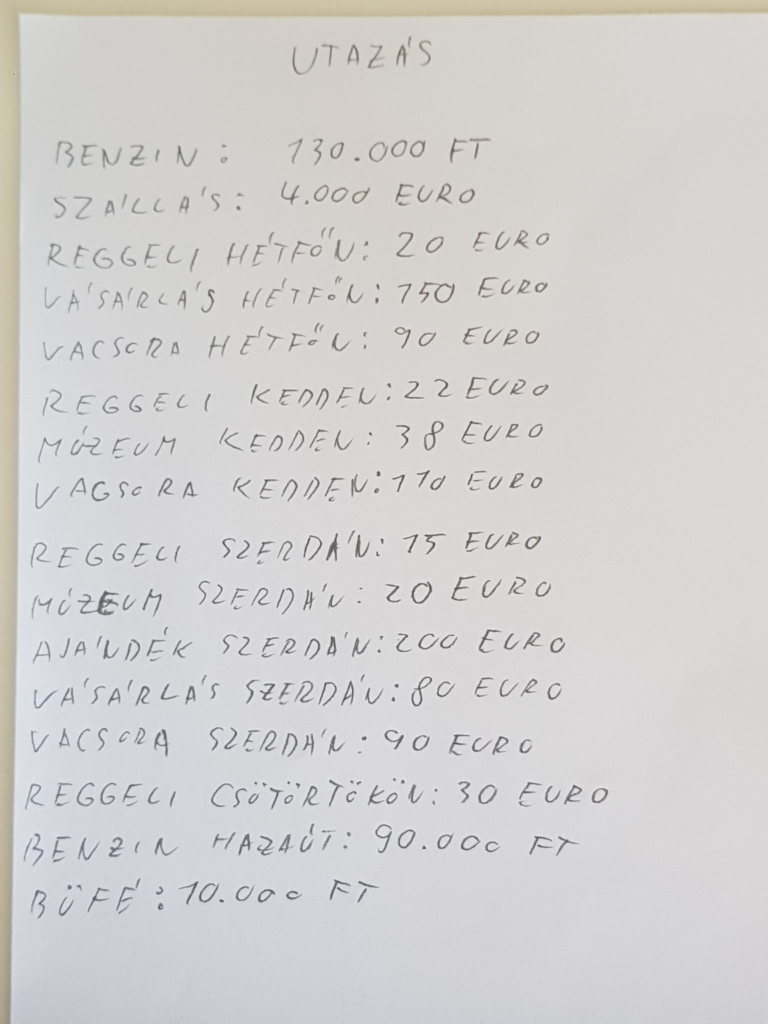 UTAZÁS
BENZIN: 130.000 FT
SZÁLLÁS: 4.000 EURO
REGGELI HÉTFŐN: 20 EURO
VÁSÁRLÁS HÉTFŐN: 150 EURO
VACSORA HÉTFŐN: 90 EURO
REGGELI KEDDEN: 22 EURO
MÚZEUM KEDDEN: 38 EURO
VACSORA KEDDEN: 110 EURO
REGGELI SZERDÁN: 15 EURO
MÚZEUM SZERDÁN: 20 EURO
AJÁNDÉK SZERDÁN: 200 EURO
VÁSÁRLÁS SZERDÁN: 80 EURO
VACSORA SZERDÁN: 90 EURO
REGGELI CSÖTÖRTÖKÖN: 30 EURO
BENZIN HAZAÚT: 90.000 FT
BÜFÉ: 10.000 FT